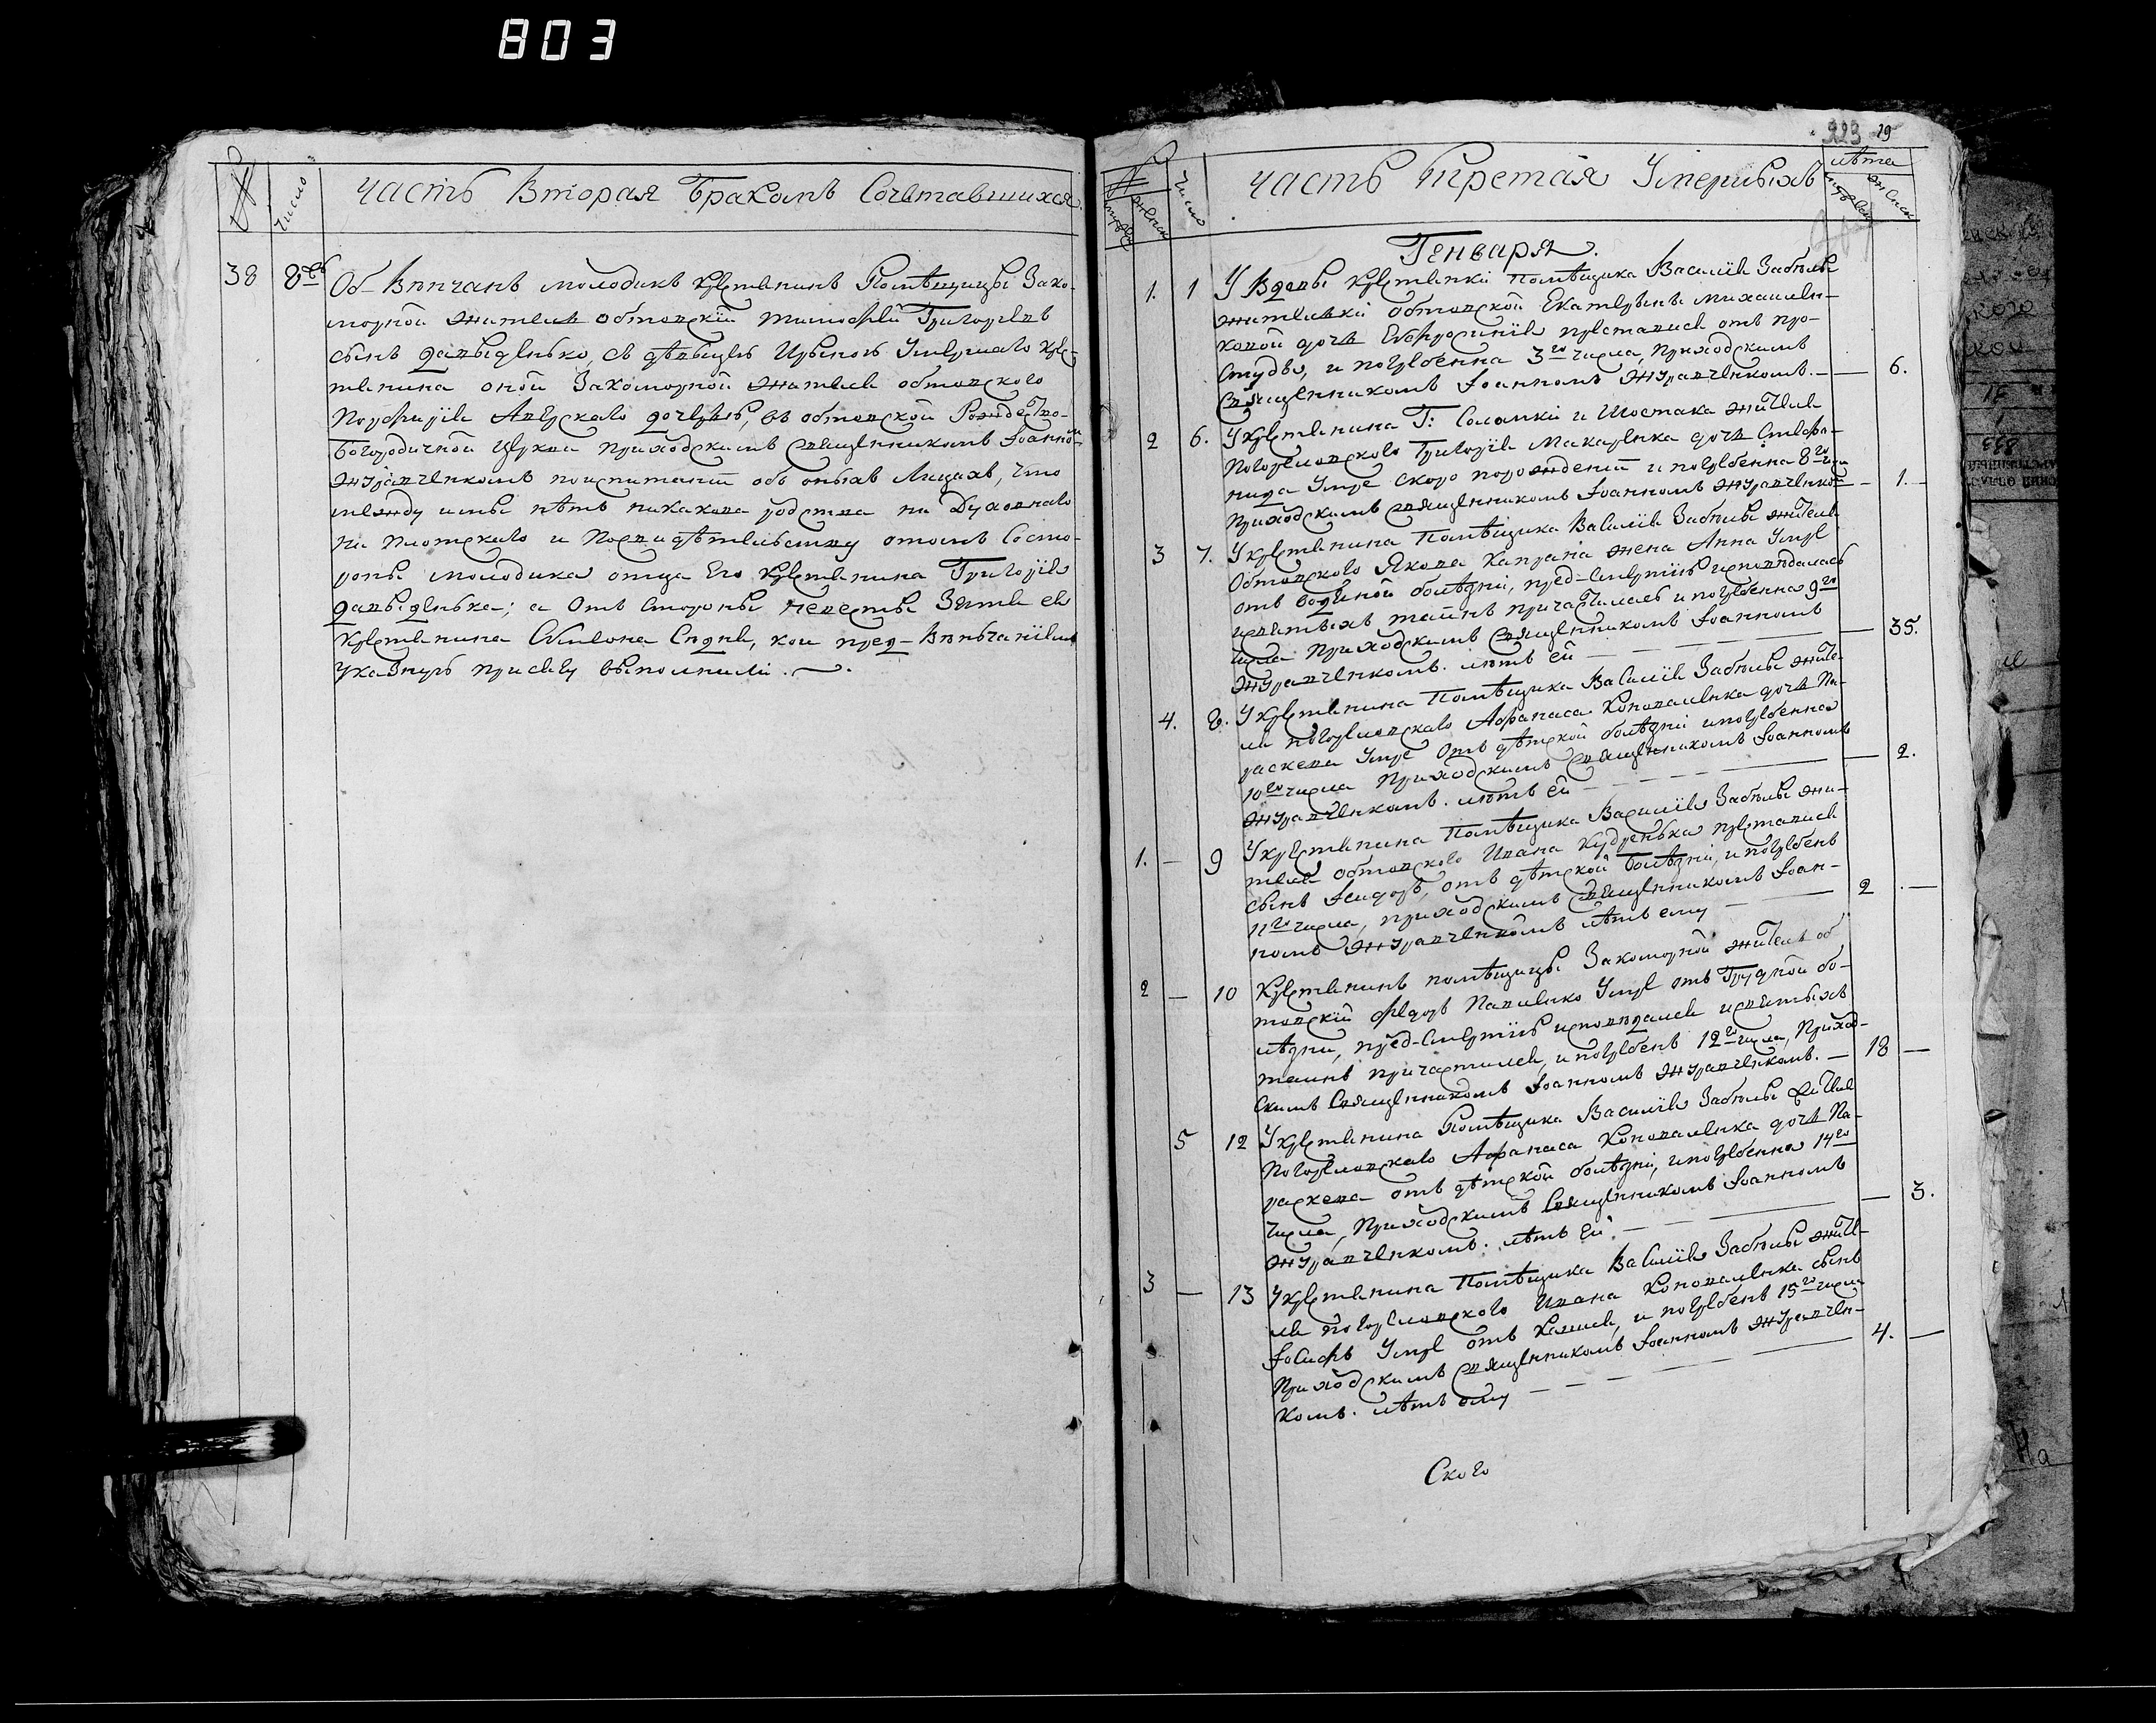 803
№ Число Часть Вторая Бракомъ Сочетавшихся.
38 8го Об-Вѣнчанъ молодикъ крестянинъ Помѣщицы Зако-
морной жителъ обтовскій Тимофѣй Григорiевъ
сынъ давыденько, съ дѣвицею Ириною Умершаго кре-
стянина оной Закоморной жителя обтовского
Порфирія дочерью, въ обтовской Рождество-
Богородичной церкви приходскимъ священникомъ Іоанномъ
Журавченкомъ поиспитаніи объ оныхъ Лицахъ, что
между ими нѣтъ никакова родства ни Духовнаго
ни плотскаго и Посвидѣтельству отомъ состо-
роны молодика отца Его крестянина Григорія
давыденька; а Отъ стороны невесты Зятя ея
крестянина кои пред-Вѣнчаніемъ
указную присягу выполнили.
223 29
№ мужск женск Число Часть Третая Умершыхъ лѣта мужск женск
Генваря.
1. 1 У Вдовы крестянки помѣщика Василія Забѣлы
жителки обтовской Екатерины михайлен-
ковой дочь Евфросинія преставися отъ про-
студы, и погребенна 3го числа, приходскимъ
священникомъ Іоанномъ Журавченкомъ. — 6.
2 6. У крестянина Г: Соломки и Шостака жителя
погореловского Григорія Макаренка дочь Стефа-
нида Умре скоро порождении и погребенна 8го числа
приходскимъ священникомъ Іоанномъ Журавченком — 1.
3 7. У крестянина помѣщика Василія Забѣлы жителя
Обтовского Якова Каправа жена Анна Умре
отъ водяной болѣзни, пред-Смертію исповѣдалась
исвятыхъ таинъ причастилась и погребенна 9го
числа приходскимъ священникомъ Іоанномъ
Журавченкомъ. лѣтъ ей — 35.
4. 8. У крестянина помѣщика Василія Забѣлы жите-
ля погореловскаго Афанаса Коноваленка дочь Па-
раскева Умре Отъ дѣтской болѣзни ипогребенна
10го числа приходскимъ священникомъ Іоанномъ
Журавченкомъ. лѣтъ ей — 2.
1. — 9 У крестянина помѣщика Василія Забѣлы жи-
теля обтовского Ивана Кудренька преставися
сынъ Ісидоръ, отъ дѣтской болѣзни, и погребенъ
11го числа, приходскимъ священникомъ Іоан-
номъ Журавченкомъ лѣтъ ему — 2 —
2 — 10 Крестянинъ помѣщицы Закоморной жителъ об
товскій Федоръ Павленко Умре отъ Грудной бо-
лѣзни, пред-Смертію исповѣдался исвятыхъ
таинъ причастился, и погребенъ 12го числа, Приход-
скимъ Священникомъ Іоанномъ Журавченкомъ. — 18 —
5 12 У крестянина Помѣщика Василія Забѣлы жителя
Погореловскаго Афанаса Коноваленка дочь Па-
раскева отъ дѣтской болѣзни, ипогребенна 14го
числа, Приходскимъ Священникомъ Іоанномъ
Журавченкомъ. лѣтъ ей — 3.
3 — 13 У крестянина помѣщика Василія Забѣлы жите-
ля погореловского Ивана Коноваленка сынъ
Іосифъ Умре отъ Кашля, и погребенъ 15го числа
Приходскимъ священникомъ Іоанномъ Журавчен-
комъ. лѣтъ ему — 4. —
Ского